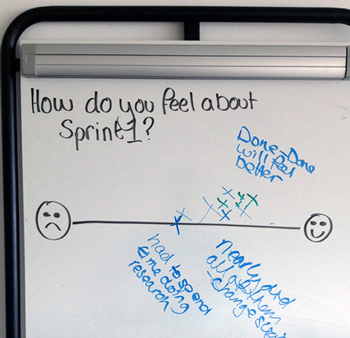 How do you feel about
Sprint 1?
Done-Done
will feel
better
had to spend
time doing
research
nearly did
all of them
-change